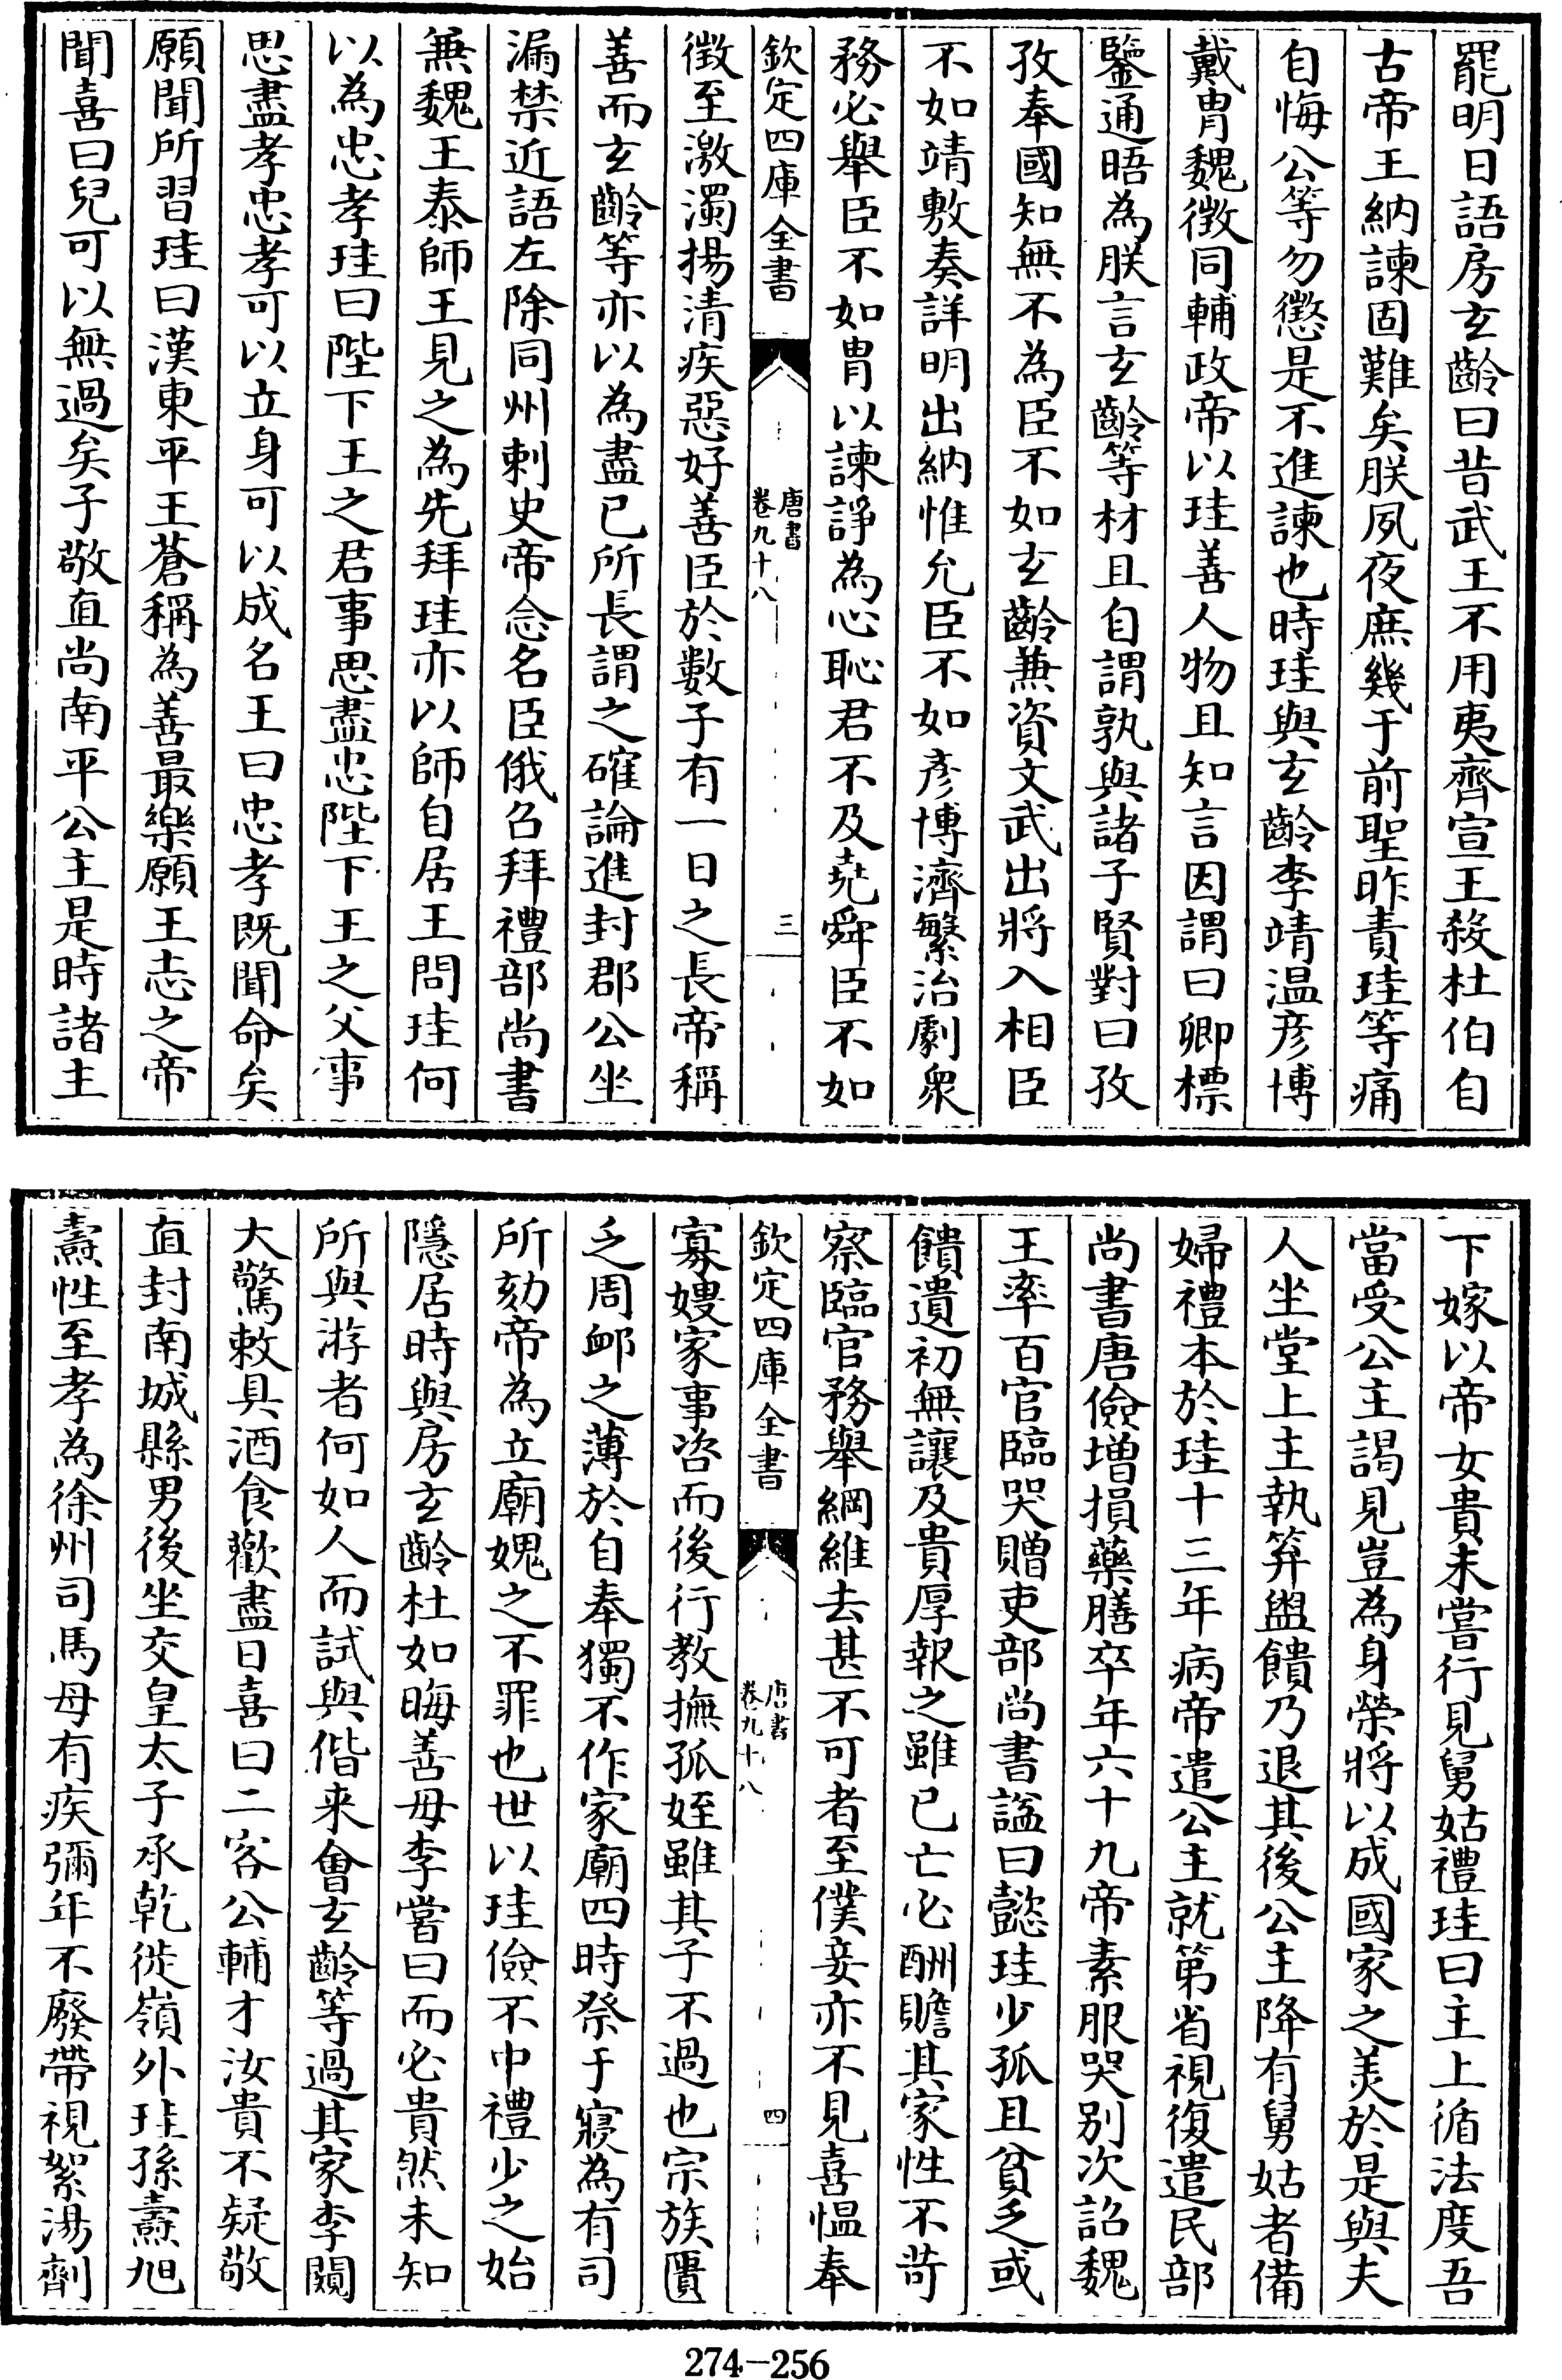 罷明日語房玄齡曰昔武王不用夷齊宣王殺杜伯自
古帝王納諫固難矣朕夙夜庶幾于前聖昨責珪等痛
自悔公等勿懲是不進諫也時珪與玄齡李靖温彦博
戴胄魏徴同輔政帝以珪善人物且知言因謂曰卿標
鑒通晤為朕言玄齡等材且自謂孰與諸子賢對曰孜
孜奉國知無不為臣不如玄齡兼資文武出將入相臣
不如靖敷奏詳明出納惟允臣不如彦博濟繁治劇衆
務必舉臣不如胄以諫諍為心恥君不及堯舜臣不如
欽定四庫全書
唐書
卷九十八
三
徴至激濁揚清疾惡好善臣於數子有一日之長帝稱
善而玄齡等亦以為盡已所長謂之確論進封郡公坐
漏禁近語左除同州刺史帝念名臣俄召拜禮部尚書
兼魏王泰師王見之為先拜珪亦以師自居王問珪何
以為忠孝珪曰陛下王之君事思盡忠陛下王之父事
思盡孝忠孝可以立身可以成名王曰忠孝既聞命矣
願聞所習珪曰漢東平王蒼稱為善最樂願王志之帝
聞喜曰兒可以無過矣子敬直尚南平公主是時諸主
下嫁以帝女貴未嘗行見舅姑禮珪曰主上循法度吾
當受公主謁見豈為身榮將以成國家之美於是與夫
人坐堂上主執笄盥饋乃退其後公主降有舅姑者備
婦禮本於珪十三年病帝遣公主就第省視復遣民部
尚書唐儉增損藥膳卒年六十九帝素服哭别次詔魏
王率百官臨哭贈吏部尚書諡曰懿珪少孤且貧乏或
饋遺初無讓及貴厚報之雖已亡必酬贍其家性不苛
察臨官務舉綱維去甚不可者至僕妾亦不見喜愠奉
欽定四庫全書
唐書
卷九十八
四
寡嫂家事咨而後行教撫孤姪雖其子不過也宗族匱
乏周卹之薄於自奉獨不作家廟四時祭于寢為有司
所劾帝為立廟媿之不罪也世以珪儉不中禮少之始
隱居時與房玄齡杜如晦善母李嘗曰而必貴然未知
所與游者何如人而試與偕来會玄齡等過其家李闚
大驚敕具酒食歡盡日喜曰二客公輔才汝貴不疑敬
直封南城縣男後坐交皇太子承乾徙嶺外珪孫燾旭
燾性至孝為徐州司馬母有疾彌年不廢帶視絮湯劑
274-256